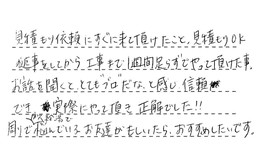 見積もり依頼にすぐに来て頂けたこと、見積もりOK
返事をしてから工事まで1週間足らずでやって頂けた事、
お話を聞くととても"プロ"だなと感じ信頼
でき実際にやって頂き正解でした!!
ガス給湯で
周りで悩んでいるお友達がもしいたら、おすすめしたいです。